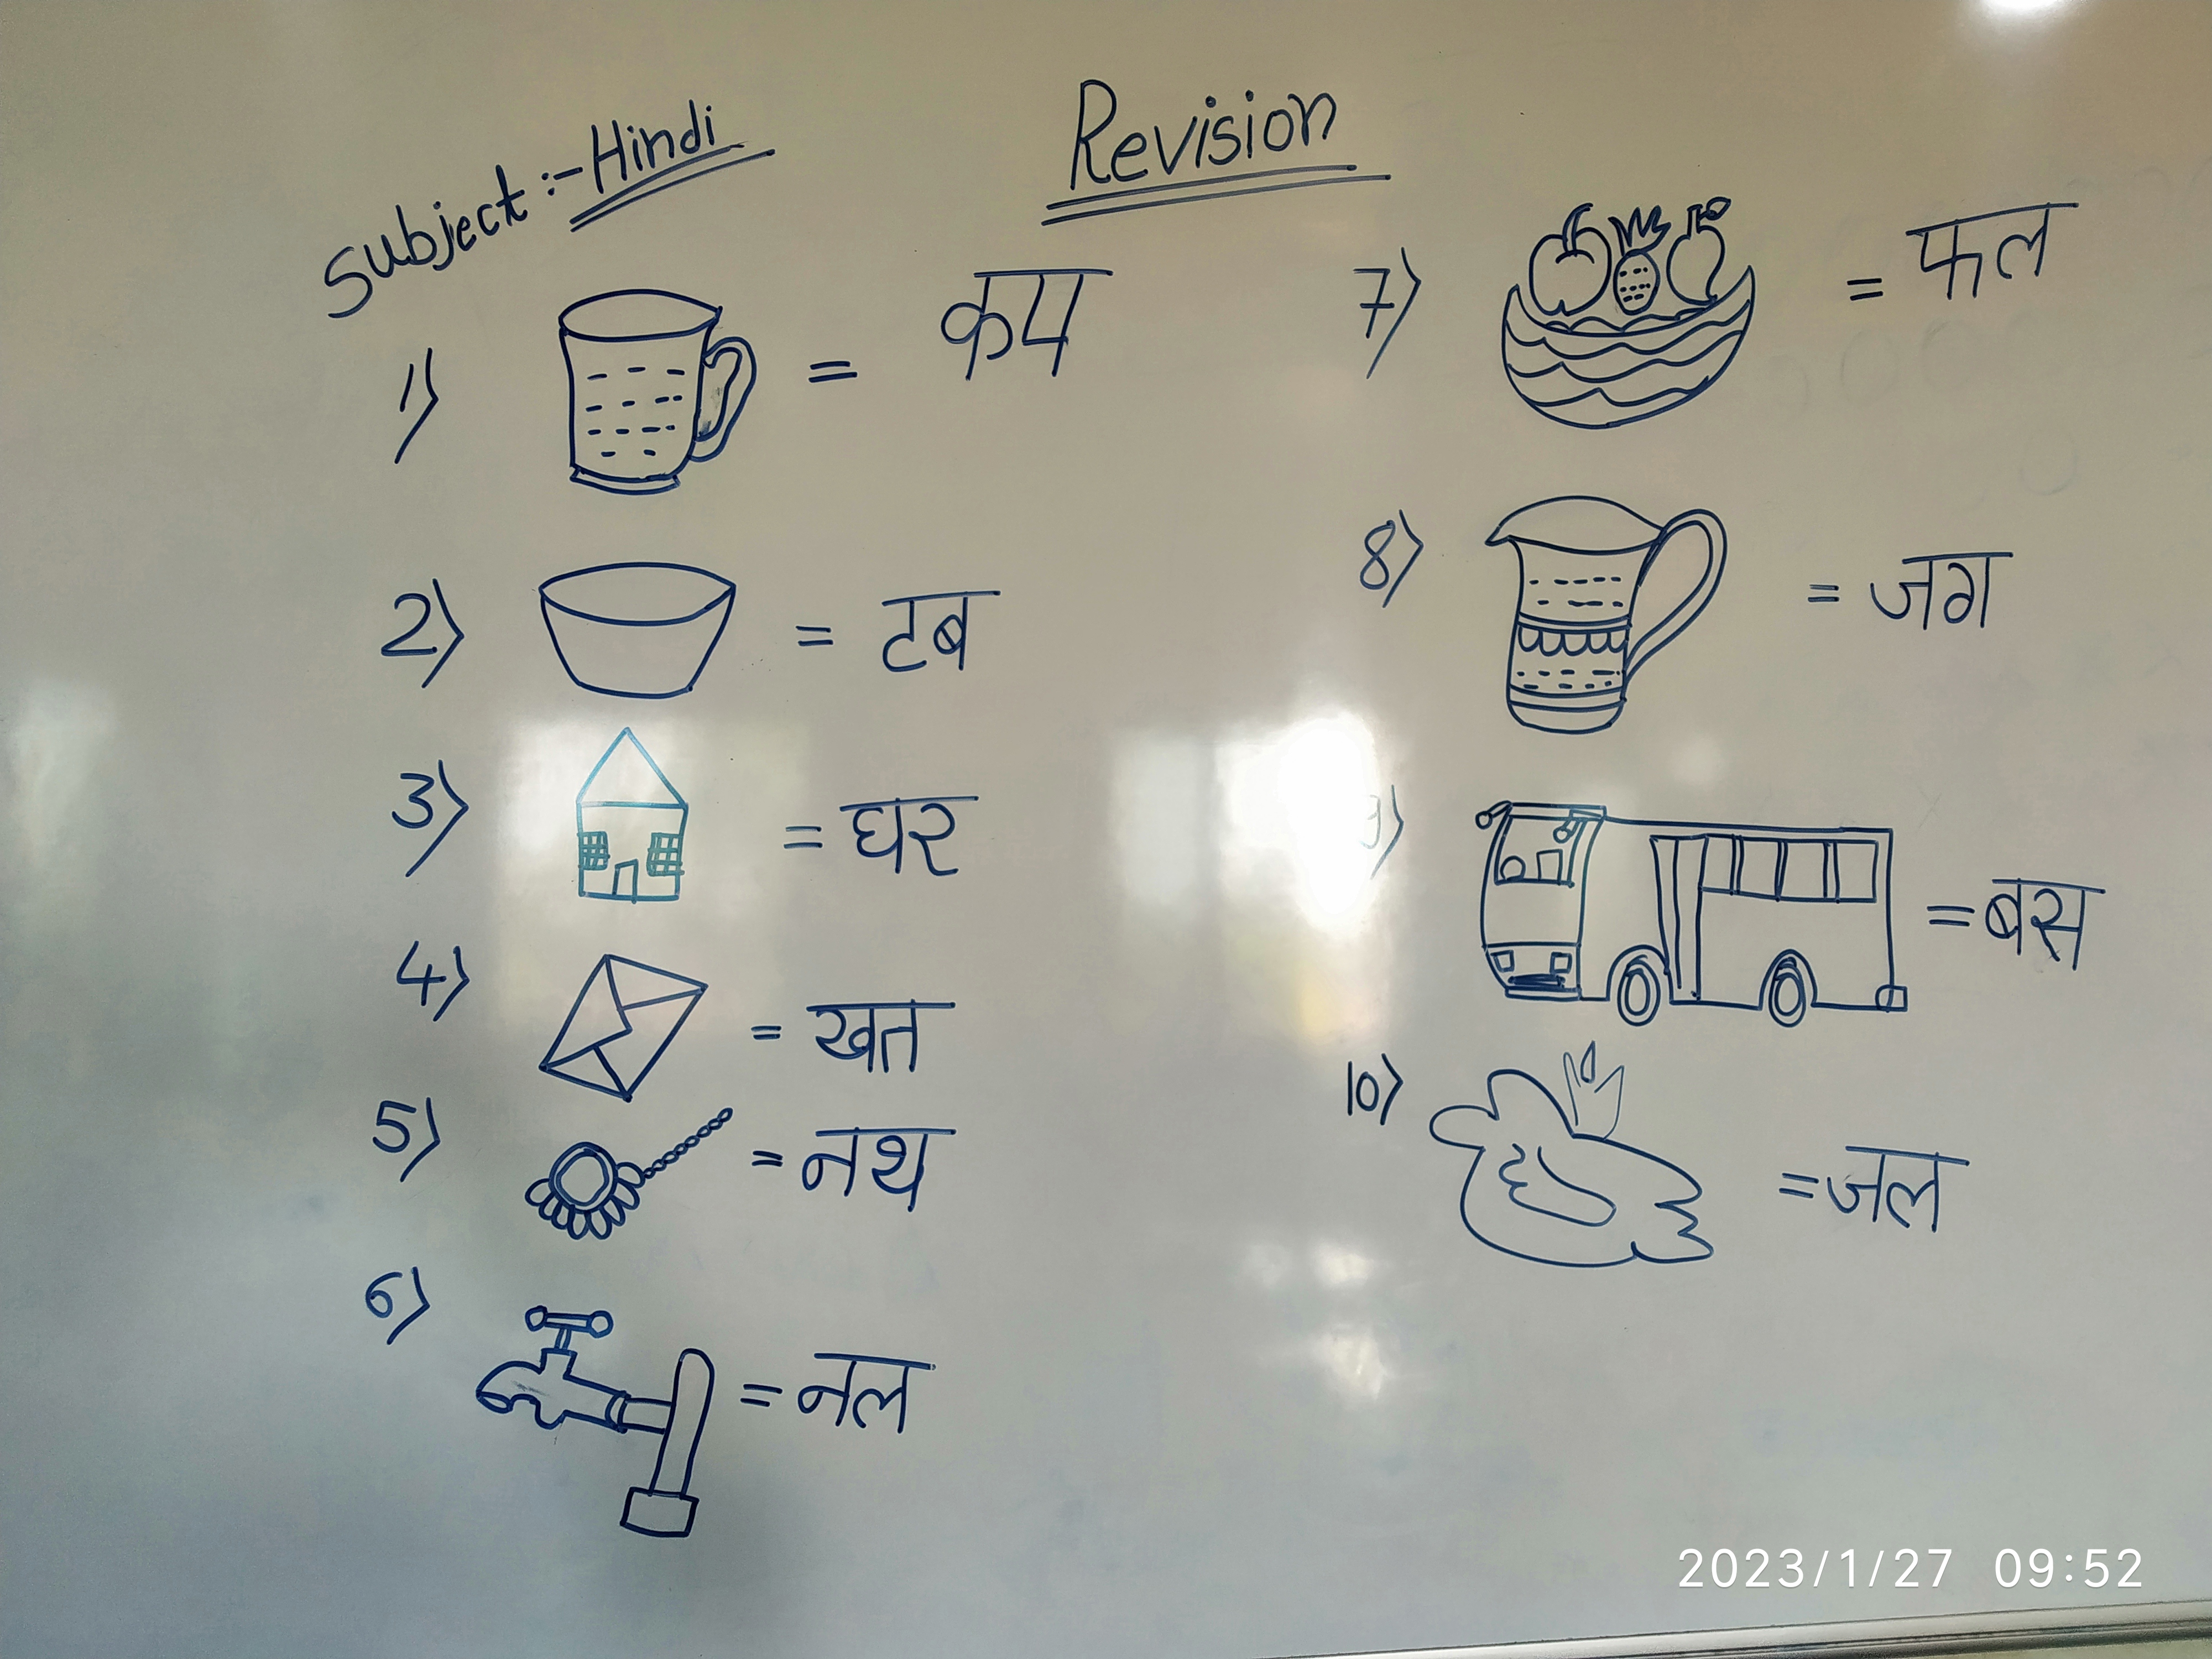 Subject :- Hindi
Revision
1) = कप
2) = टब
3) = घर
4) = खत
5) = नथ
6) = नल
7) = फल
8) = जग
9) = बस
10) = जल
2023/1/27 09:52